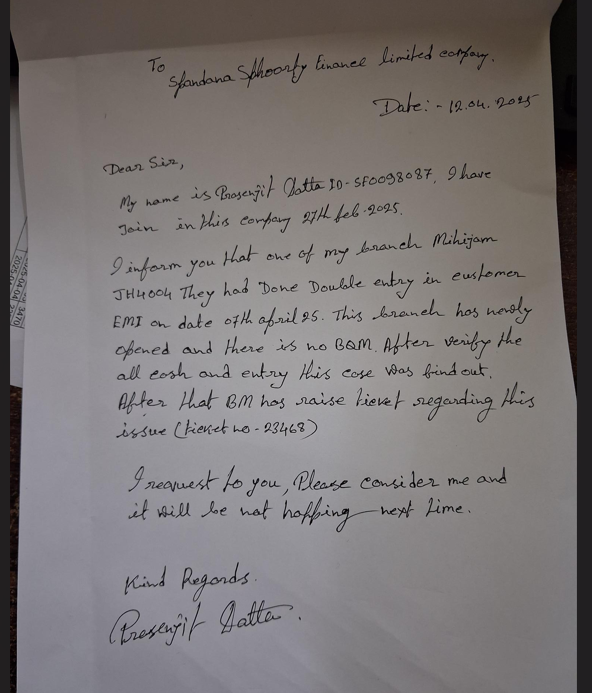 To
Spandana Sphoorty Finance limited company.
Date: - 12.04.2025
Dear Sir,
My name is Prosenjit Datta ID-SF0098087. I have
Join in this company 27th feb-2025.
I inform you that one of my branch Mihijam
JH4004 They had Done Double entry in customer
EMI on date 07th april 25. This branch has newly
opened and there is no BQM. After verify the
all cash and entry this case was find out.
After that BM has raise ticket regarding this
issue (ticket no - 23468)
I request to you, Please consider me and
it will be not happing next time.
Kind Regards.
Prosenjit Datta.